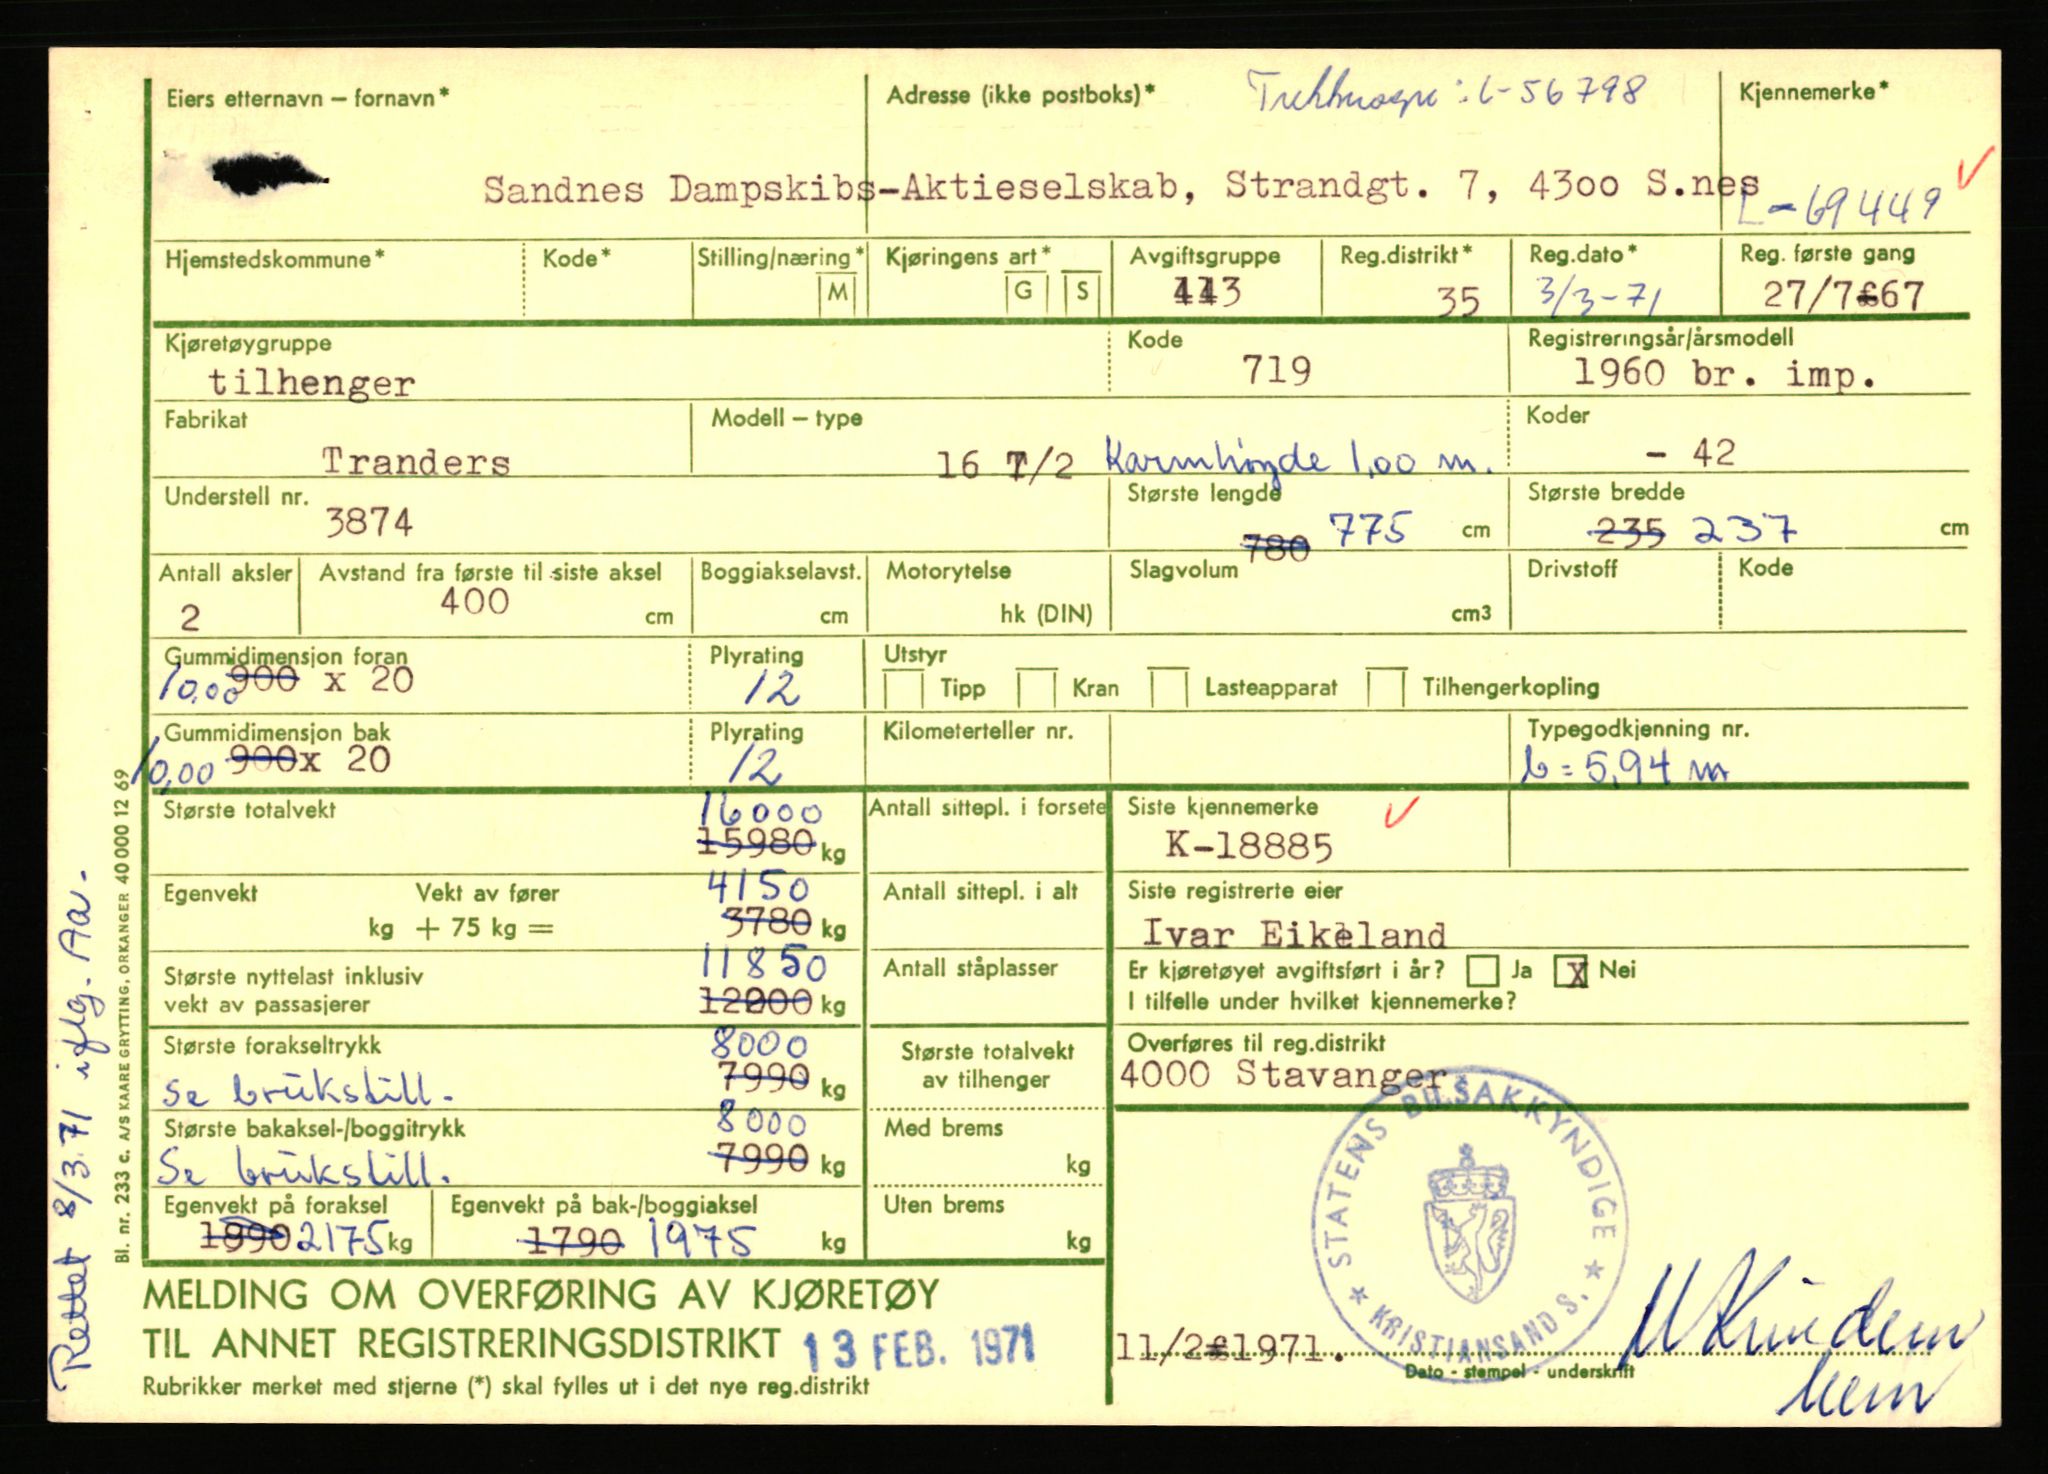 Eiers etternavn – fornavn*
Adresse (ikke postboks)* : L-56798
Kjennemerke*
Sandnes Dampskibs-Aktieselskab, Strandgt. 7, 4300 S.nes L-69449
Hjemstedskommune* Kode* Stilling/næring* M Kjøringens art* G S Avgiftsgruppe Reg.distrikt* Reg.dato* Reg. første gang
113 35 3/3-71 27/7-67
Kjøretøygruppe Kode Registreringsår/årsmodell
tilhenger 719 1960 br. imp.
Fabrikat Modell – type Koder
Tranders 16 T/2 Karmhöyde 1,00 m. - 42
Understell nr. Største lengde Største bredde
3874 780 775 cm 235 237 cm
Antall aksler Avstand fra første til siste aksel Boggiakselavst. Motorytelse Slagvolum Drivstoff Kode
2 400 cm cm hk (DIN) cm3
Gummidimensjon foran Plyrating Utstyr
10,00 900 x 20 12 Tipp Kran Lasteapparat Tilhengerkopling
Gummidimensjon bak Plyrating Kilometerteller nr. Typegodkjenning nr.
10,00 900x 20 12 b = 5,94 m
Største totalvekt 16000 Antall sittepl. i forsete Siste kjennemerke
15980 kg K-18885
Egenvekt Vekt av fører 4150 Antall sittepl. i alt Siste registrerte eier
kg + 75 kg = 3780 kg Ivar Eikeland
Største nyttelast inklusiv 11850 Antall ståplasser Er kjøretøyet avgiftsført i år? Ja X Nei
vekt av passasjerer 12200 kg I tilfelle under hvilket kjennemerke?
Største forakseltrykk 8000 Største totalvekt Overføres til reg.distrikt
Se brukstill. 7990 kg av tilhenger 4000 Stavanger
Største bakaksel-/boggitrykk 8000 Med brems
Se brukstill. 7990 kg kg
Egenvekt på foraksel Egenvekt på bak-/boggiaksel Uten brems
1990 2175 kg 1790 1975 kg kg
STATENS BILSAKKYNDIGE * KRISTIANSAND S. *
MELDING OM OVERFØRING AV KJØRETØY
TIL ANNET REGISTRERINGSDISTRIKT 13 FEB. 1971
11/2-1971.
Dato - stempel - underskrift
Rubrikker merket med stjerne (*) skal fylles ut i det nye reg.distrikt
Bl. nr. 233 c. A/S KAARE GRYTTING, ORKANGER 40 000 12 69
Rettet 8/3.71 iflg. Aa.